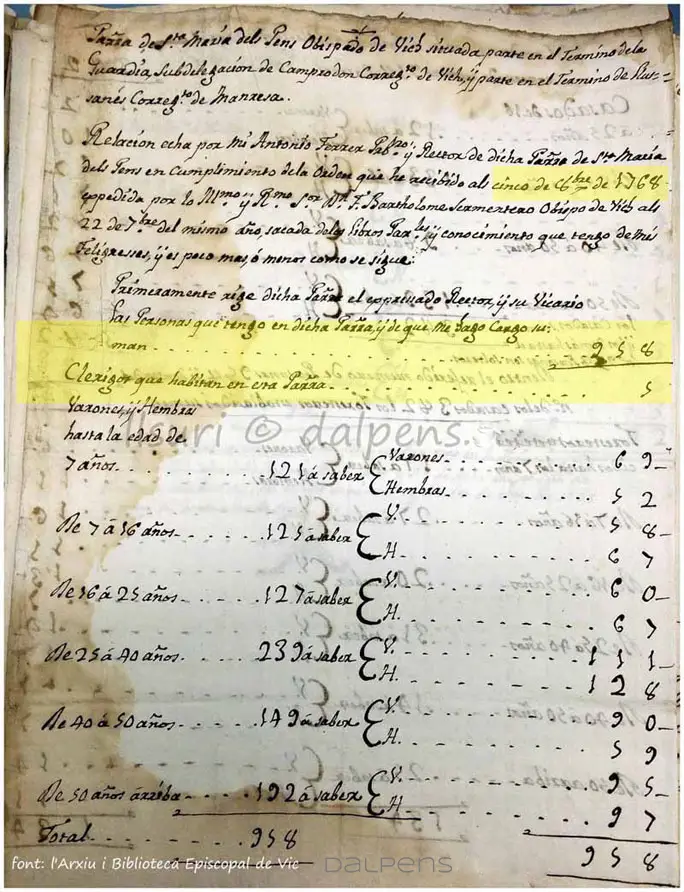 Parra de Sta. Maria dels Pens Obispado de Vich situada parte en el Termino de la
Guardia, Subdelegacion de Camprodon Corregto. de Vich, y parte en el Termino de Llus-
sanés Corregto. de Manresa.
Relacion echa por Mi Antonio Ferrer Pbro. y Rector de dicha Parra de Sta. Maria
dels Pens en Cumplimiento de la Orden que he recibido al cinco de 8bre de 1768
eppedida por lo Illmo. y Rmo. Sor. Dn. F. Bartholome Sermentero Obispo de Vich als
22 de 7bre del mismo año, sacada de los libros Parles. y conocimiento que tengo de mis
Feligreses, y es poco mas, ó menos como se sigue:
Primeramente rige dicha Parra el eppresado Rector, y su Vicario
Las Personas que tengo en dicha Parra, y de que me hago Cargo su:
man . . . . 958
Clerigos que habitan en esta Parra . . . . 5
Varones, y Hembras
hasta la edad de
lisuri © dalpens.
7 años . . . . 121 á saber { Varones . . . . 69
Hembras . . . . 52
De 7 á 16 años . . . . 125 á saber { V. . . . . 58
H. . . . . 67
De 16 á 25 años . . . . 127 á saber { V. . . . . 60
H. . . . . 67
De 25 á 40 años . . . . 239 á saber { V. . . . . 111
H. . . . . 128
De 40 á 50 años . . . . 149 á saber { V. . . . . 90
H. . . . . 59
De 50 años árriba . . . . 192 á saber { V. . . . . 95
H . . . . 97
Total . . . . 958 958
font: l'Arxiu i Biblioteca Episcopal de Vic DALPENS